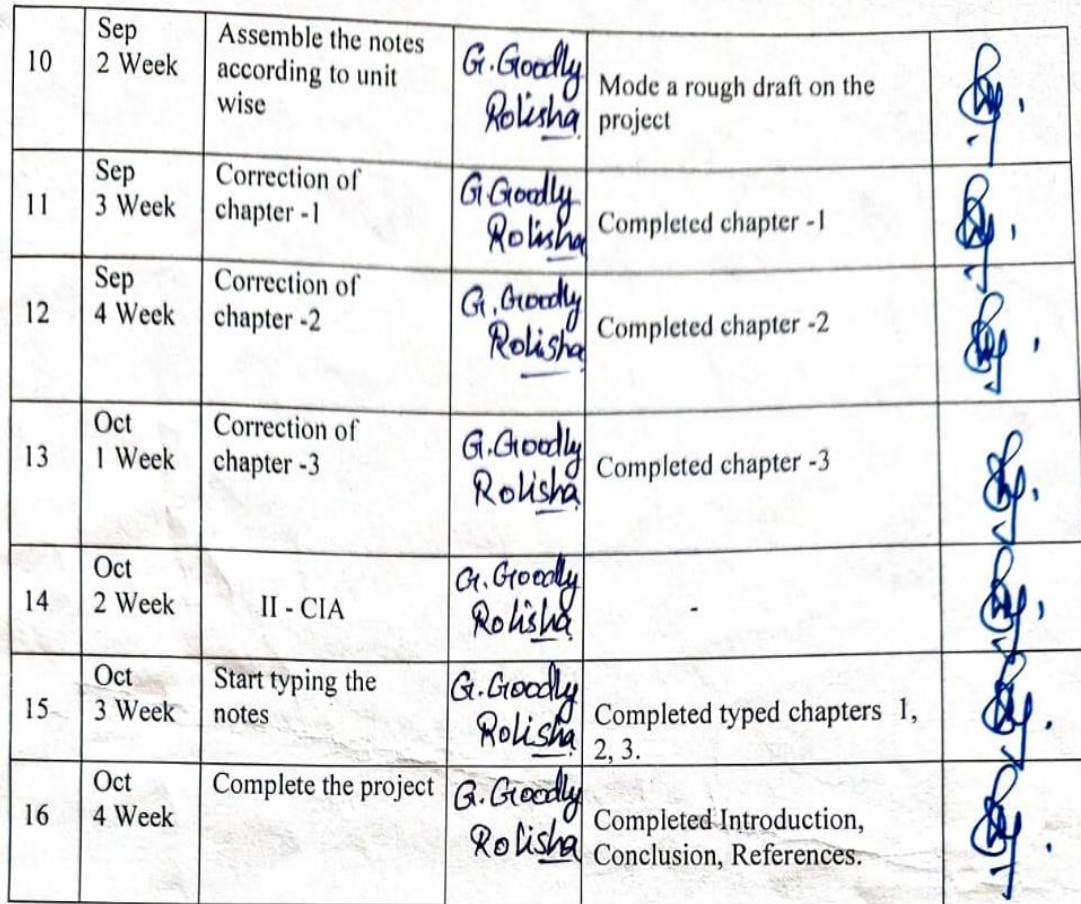 10
Sep
2 Week
Assemble the notes
according to unit
wise
G. Goodly
Rolisha
Mode a rough draft on the
project
11
Sep
3 Week
Correction of
chapter -1
G. Goodly
Rolisha
Completed chapter -1
12
Sep
4 Week
Correction of
chapter -2
G. Goodly
Rolisha
Completed chapter -2
13
Oct
1 Week
Correction of
chapter -3
G. Goodly
Rolisha
Completed chapter -3
14
Oct
2 Week
II - CIA
G. Goodly
Rolisha
-
15
Oct
3 Week
Start typing the
notes
G. Goodly
Rolisha
Completed typed chapters 1,
2, 3.
16
Oct
4 Week
Complete the project
G. Goodly
Rolisha
Completed Introduction,
Conclusion, References.